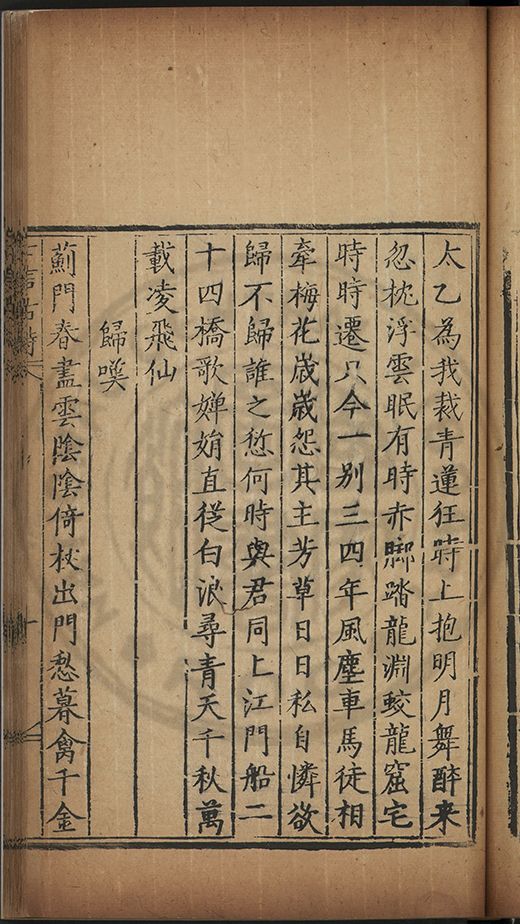 太乙為我裁青蓮狂時上抱明月舞醉来
忽枕浮雲眠有時赤脚踏龍淵蛟龍窟宅
時時遷只今一别三四年風塵車馬徒相
牽梅花歳歳怨其主芳草日日私自憐欲
歸不歸誰之愆何時與君同上江門船二
十四橋歌嬋娟直從白浪尋青天千秋萬
載凌飛仙
歸嘆
薊門春盡雲陰陰倚杖出門愁暮禽千金
七言古詩